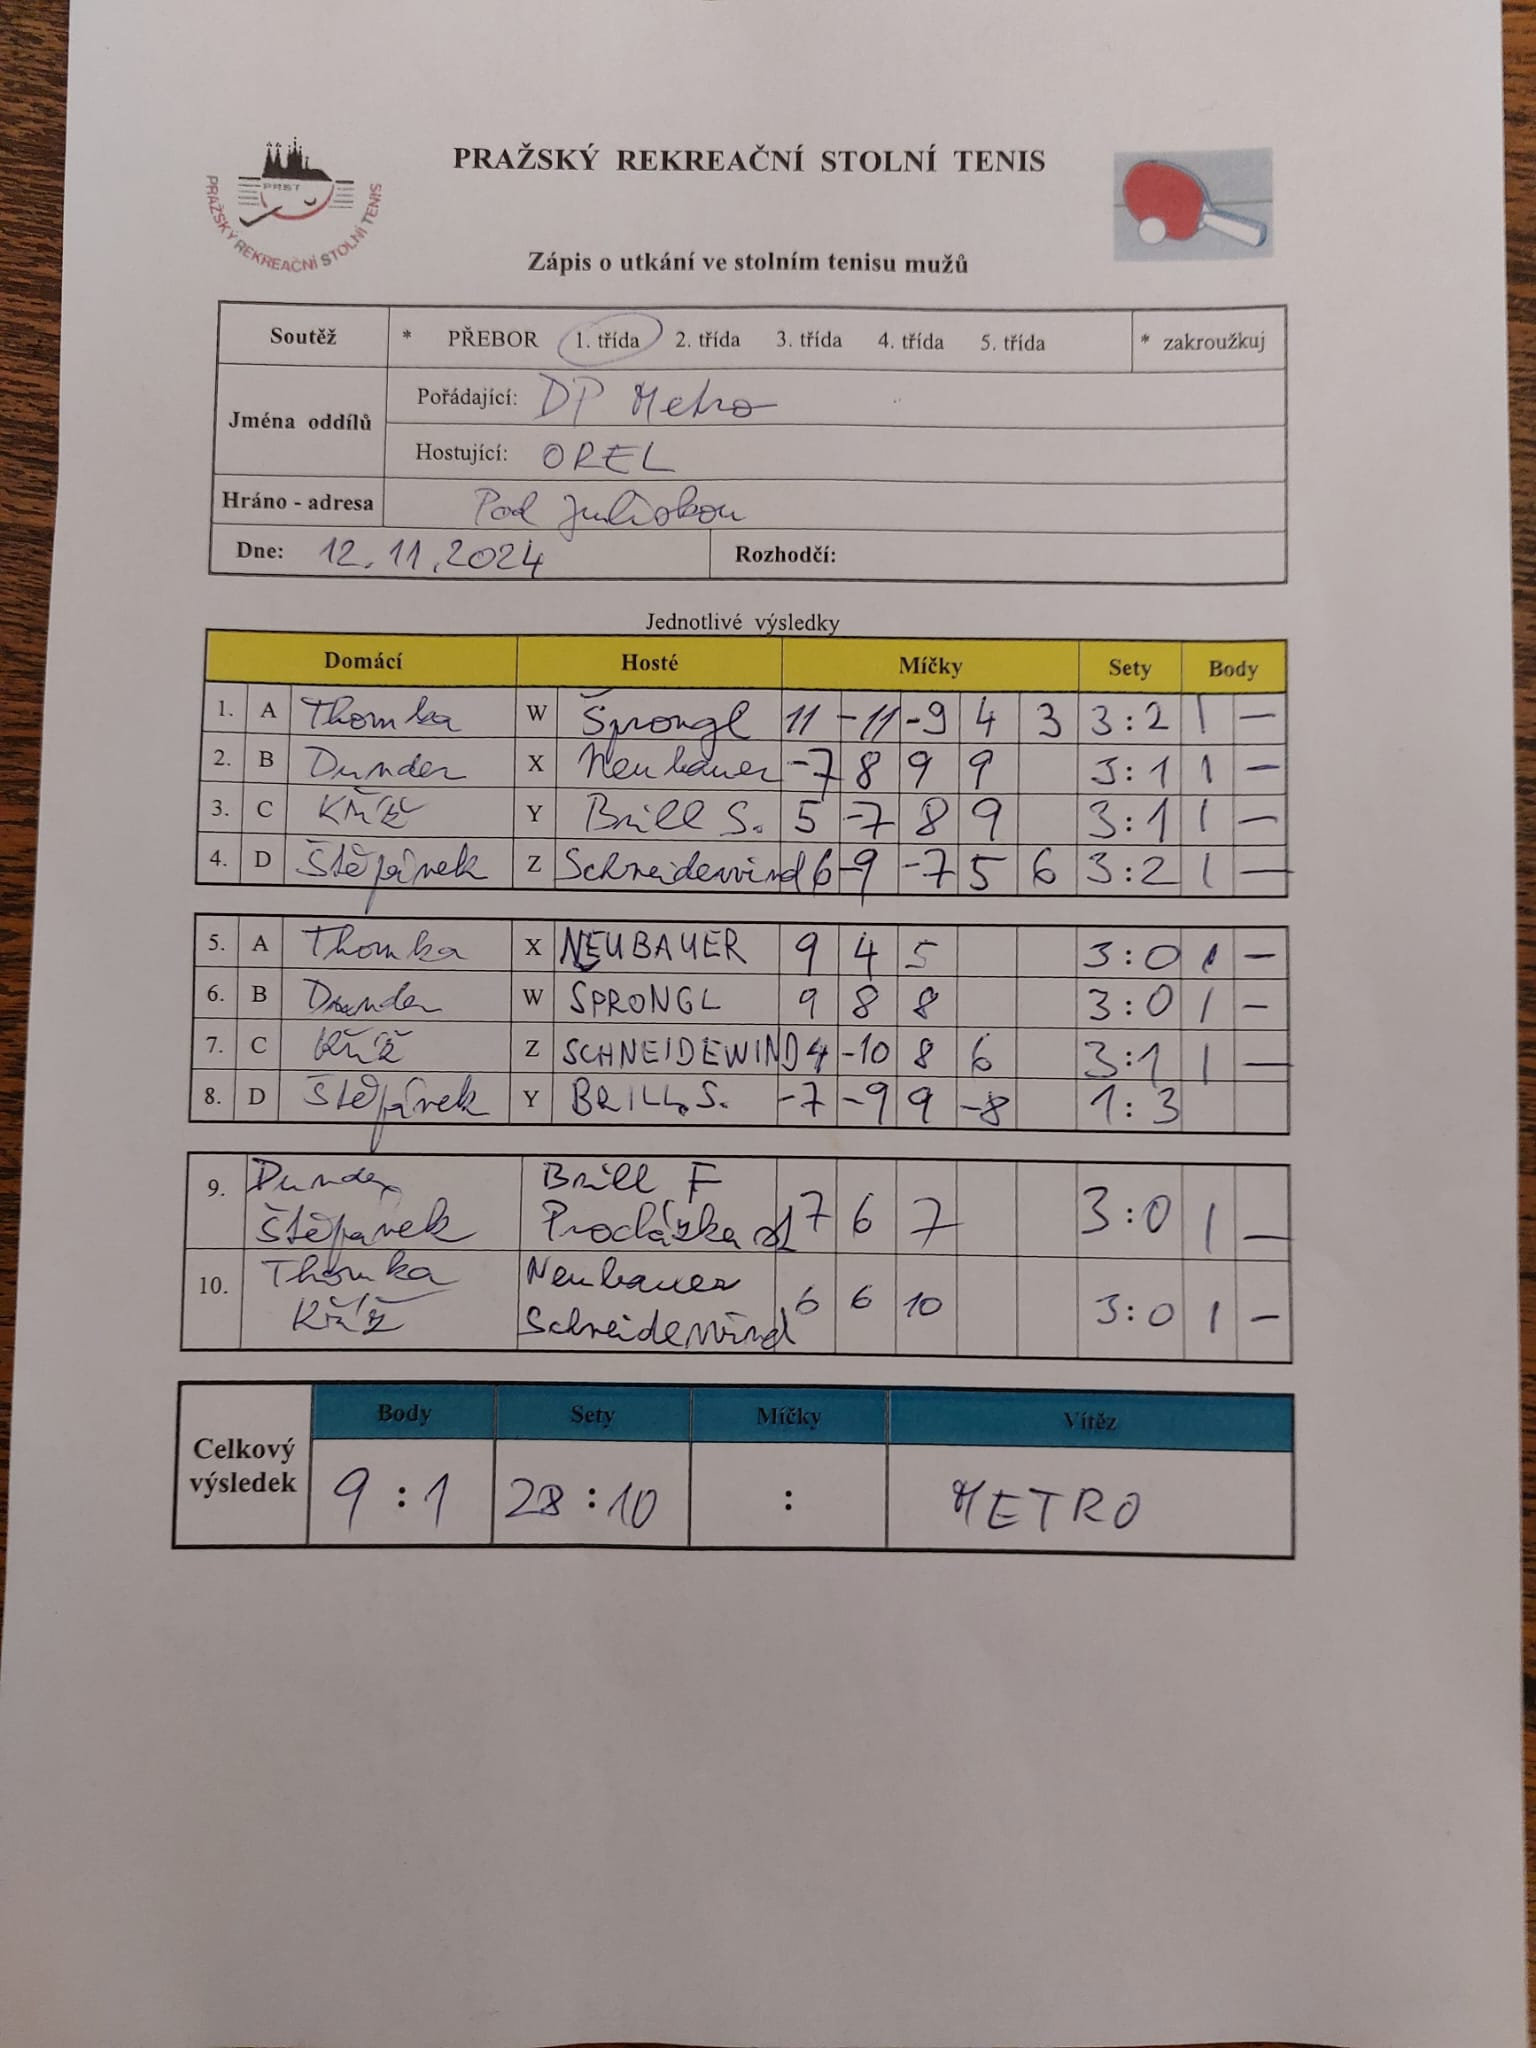 PRAŽSKÝ REKREAČNÍ STOLNÍ TENIS
PRST
PRAŽSKÝ REKREAČNÍ STOLNÍ TENIS
Zápis o utkání ve stolním tenisu mužů
Soutěž * PŘEBOR 1. třída 2. třída 3. třída 4. třída 5. třída * zakroužkuj
Jména oddílů
Pořádající: DP Metro
Hostující: OREL
Hráno - adresa Pod Juliskou
Dne: 12.11.2024 Rozhodčí:
Jednotlivé výsledky
Domácí Hosté Míčky Sety Body
1. A Thomka W Šprongl 11 -11 -9 4 3 3:2 1 -
2. B Dunder X Neubauer -7 8 9 9 3:1 1 -
3. C Kříž Y Brill S. 5 -7 8 9 3:1 1 -
4. D Štěpánek Z Schneidewind 6 -9 -7 5 6 3:2 1 -
5. A Thomka X NEUBAUER 9 4 5 3:0 1 -
6. B Dunder W SPRONGL 9 8 8 3:0 1 -
7. C Kříž Z SCHNEIDEWIND 4 -10 8 6 3:1 1 -
8. D Štěpánek Y BRILL S. -7 -9 9 -8 1:3
9. Dunder Brill F 7 6 7 3:0 1 -
Štěpánek Procházka st
10. Thomka Neubauer 6 6 10 3:0 1 -
Kříž Schneidewind
Celkový výsledek
Body Sety Míčky Vítěz
9:1 28:10 : METRO